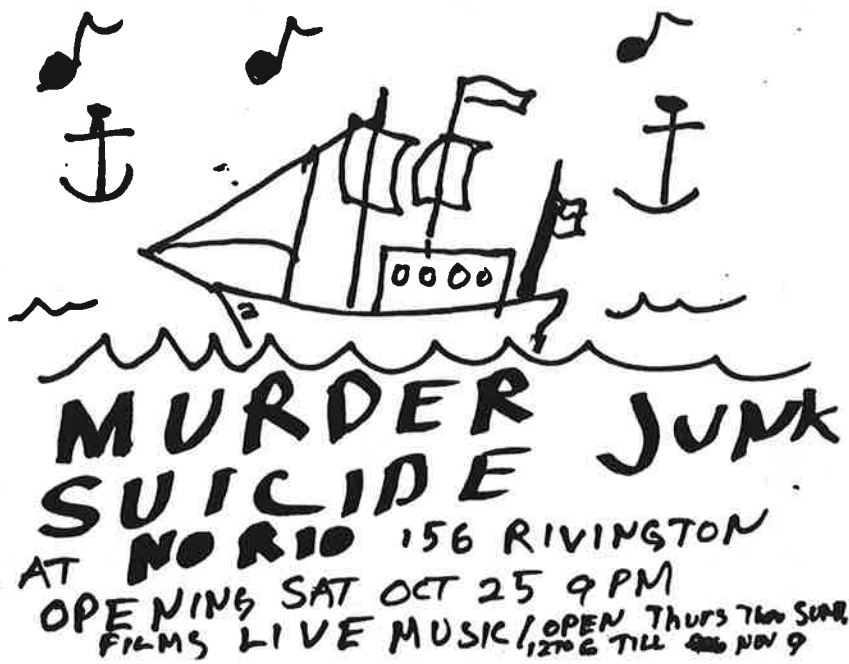 MURDER JUNK
SUICIDE
AT NO RIO 156 RIVINGTON
OPENING SAT OCT 25 9 PM
FILMS LIVE MUSIC/OPEN Thurs Thro SUND,
12TO6 TILL NOV 9